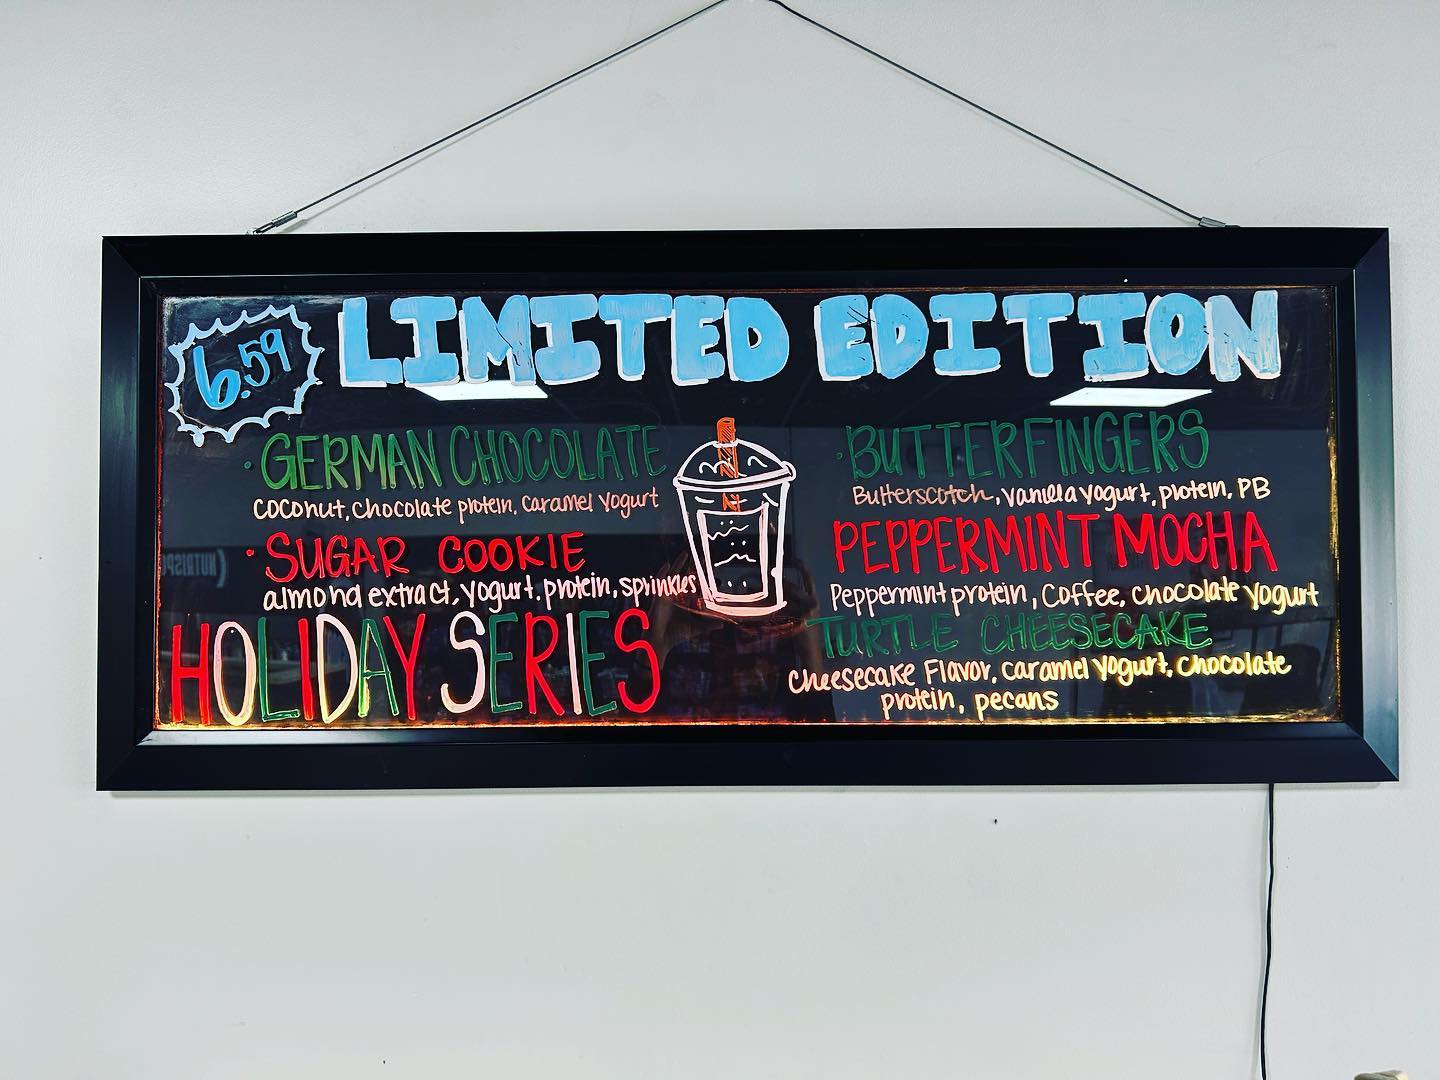 6.59
LIMITED EDITION
· GERMAN CHOCOLATE
coconut, chocolate protein, caramel yogurt
· SUGAR COOKIE
almond extract, yogurt, protein, sprinkles
HOLIDAY SERIES
· BUTTERFINGERS
Butterscotch, vanilla yogurt, protein, PB
PEPPERMINT MOCHA
Peppermint protein, Coffee, chocolate yogurt
TURTLE CHEESECAKE
cheesecake Flavor, caramel yogurt, chocolate
protein, pecans